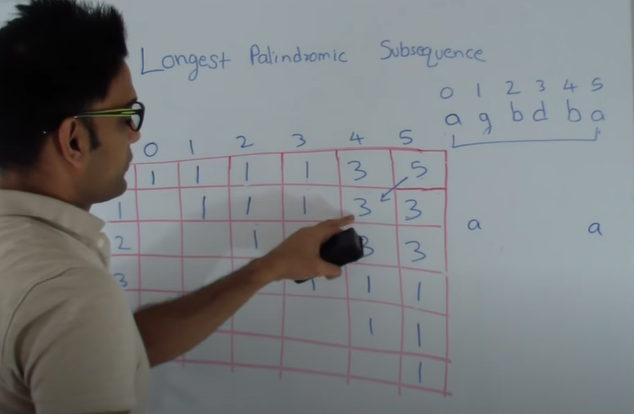 Longest Palindromic Subsequence
0 1 2 3 4 5
a g b d b a
0 1 2 3 4 5
1 1 1 1 3 5
1 1 1 1 3 3
2 1 3 3
3 1 1 1
1 1
1
a a